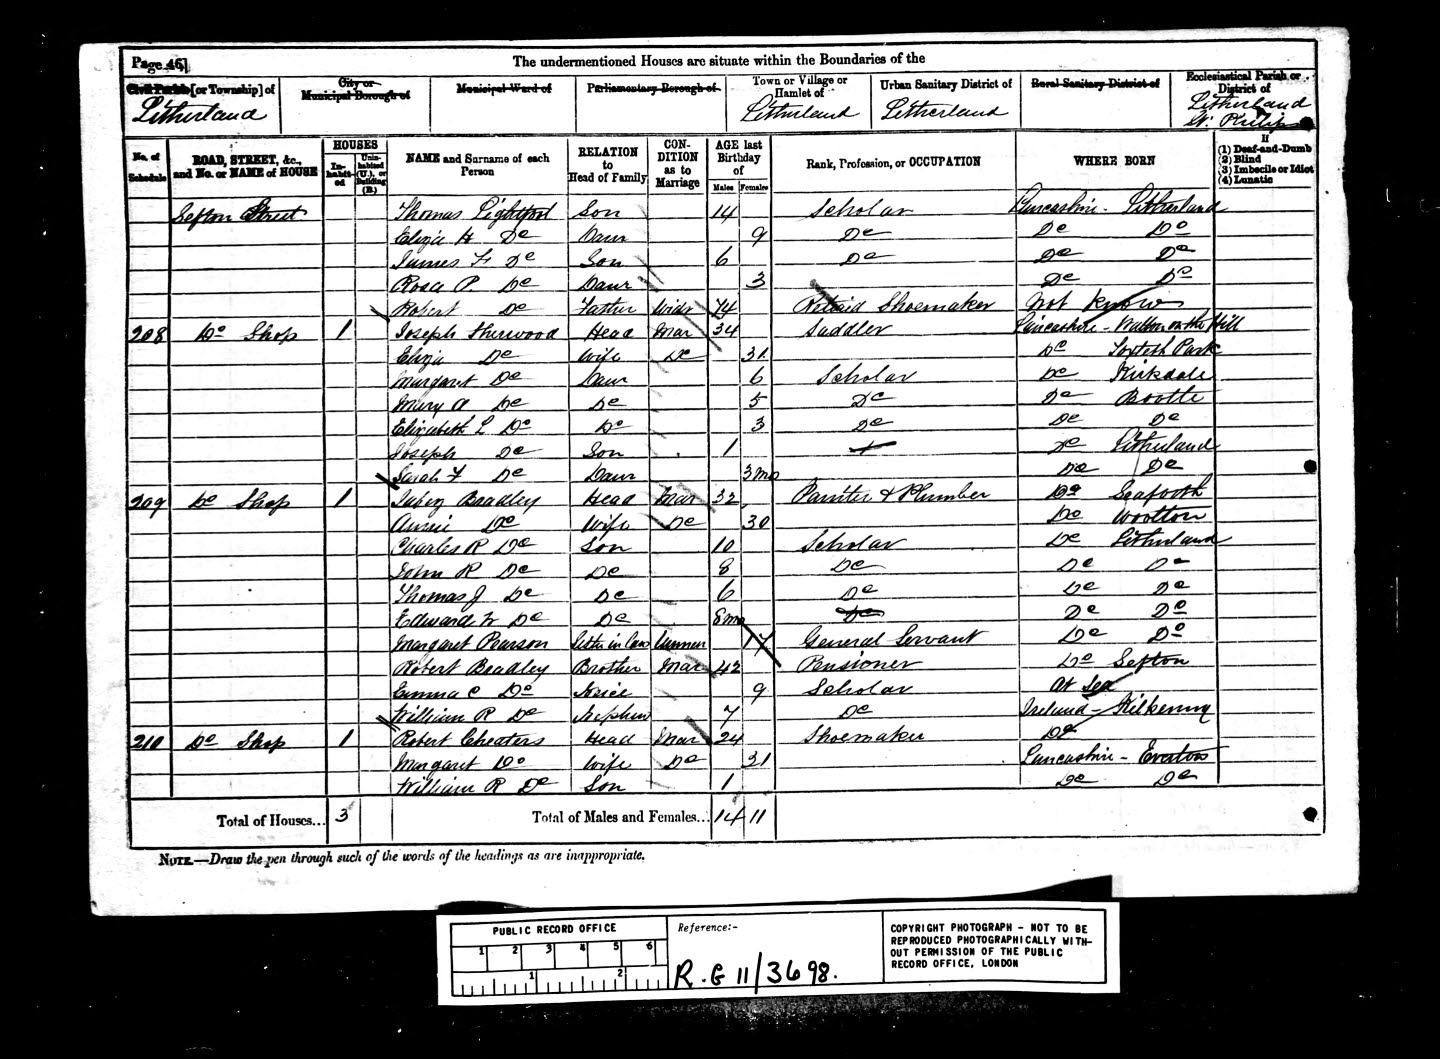 Page 46]
The undermentioned Houses are situate within the Boundaries of the
Civil Parish [or Township] of
City or Municipal Borough of
Municipal Ward of
Parliamentary Borough of
Town or Village or Hamlet of
Urban Sanitary District of
Rural Sanitary District of
Ecclesiastical Parish or District of
Litherland
Litherland
Litherland
Litherland St. Philips
No. of Schedule
ROAD, STREET, &c., and No. or NAME of HOUSE
HOUSES
Inhabited
Uninhabited (U.), or Building (B.)
NAME and Surname of each Person
RELATION to Head of Family
CONDITION as to Marriage
AGE last Birthday of
Males
Females
Rank, Profession, or OCCUPATION
WHERE BORN
If
(1) Deaf-and-Dumb
(2) Blind
(3) Imbecile or Idiot
(4) Lunatic
Sefton Street Thomas Lightfoot Son 14 Scholar Lancashire - Litherland
Eliza H Do Daur 9 Do Do Do
James F Do Son 6 Do Do Do
Rosa P. Do Daur 3 Do Do
Robert Do Father Widr 74 Retired Shoemaker Not Known
208 Do Shop 1 Joseph Sherwood Head Mar 34 Saddler Lancashire - Walton on the Hill
Eliza Do Wife Do 31 Do Toxteth Park
Margaret Do Daur 6 Scholar Do Kirkdale
Mary A Do Do 5 Do Do Bootle
Elizabeth L Do Do 3 Do Do Do
Joseph Do Son 1 Do Litherland
Sarah F Do Daur 3mo Do Do
209 Do Shop 1 Jabez Bradley Head Mar 32 Painter & Plumber Do Seaforth
Annie Do Wife Do 30 Do Wootton
Charles R Do Son 10 Scholar Do Litherland
John R Do Do 8 Do Do Do
Thomas J Do Do 6 Do Do Do
Edward Do Do 8mo Do Do Do
Margaret Pearson Sister in law Unmar 17 General Servant Do Do
Robert Bradley Brother Mar 42 Pensioner Do Sefton
Emma C Do Neice 9 Scholar At Sea
William R Do Nephew 7 Do Ireland - Kilkenny
210 Do Shop 1 Robert Cheaters Head Mar 24 Shoemaker Do
Margaret Do Wife Do 21 Lancashire - Everton
William R Do Son 1 Do Do
Total of Houses... 3 Total of Males and Females... 14 11
NOTE.—Draw the pen through such of the words of the headings as are inappropriate.
PUBLIC RECORD OFFICE
1 2 3 4 5 6
1 2
Reference:-
R.G 11/3698.
COPYRIGHT PHOTOGRAPH - NOT TO BE
REPRODUCED PHOTOGRAPHICALLY WITH-
OUT PERMISSION OF THE PUBLIC
RECORD OFFICE, LONDON